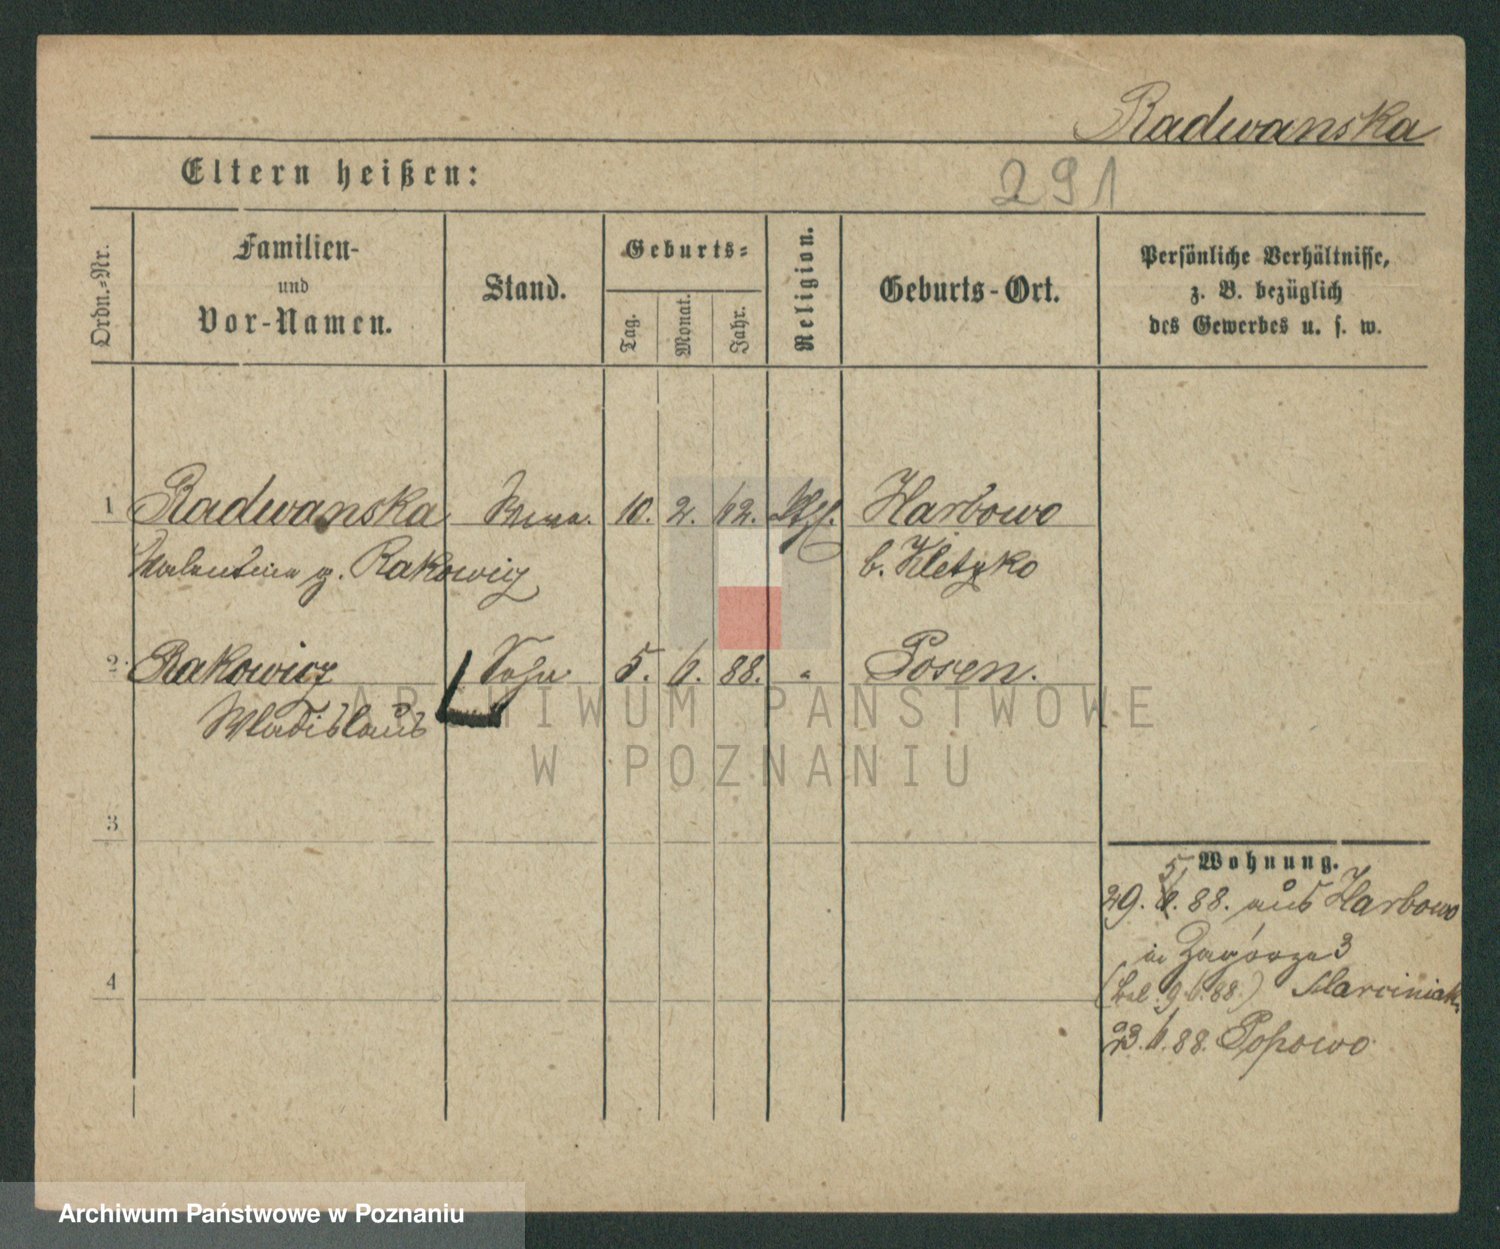 Radwanska
Eltern heißen:
291
Ordn.-Nr.
Familien-
und
Vor-Namen.
Stand.
Geburts-
Tag.
Monat.
Jahr.
Religion.
Geburts-Ort.
Persönliche Verhältnisse,
z. B. bezüglich
des Gewerbes u. s. w.
1 Radwanska Wwe. 10. 2. 62. Harbowo
Valentine g. Rakowicz b. Kletzko
2 Rakowicz Sohn 5. 6. 88. " Posen.
Wladislaus
3
4
Wohnung.
5/
29. 6. 88. aus Harbowo
in Zagorze 3
9.6.88.) Marciniak
23. 6. 88. Popowo
ARCHIWUM PAŃSTWOWE
W POZNANIU
Archiwum Państwowe w Poznaniu